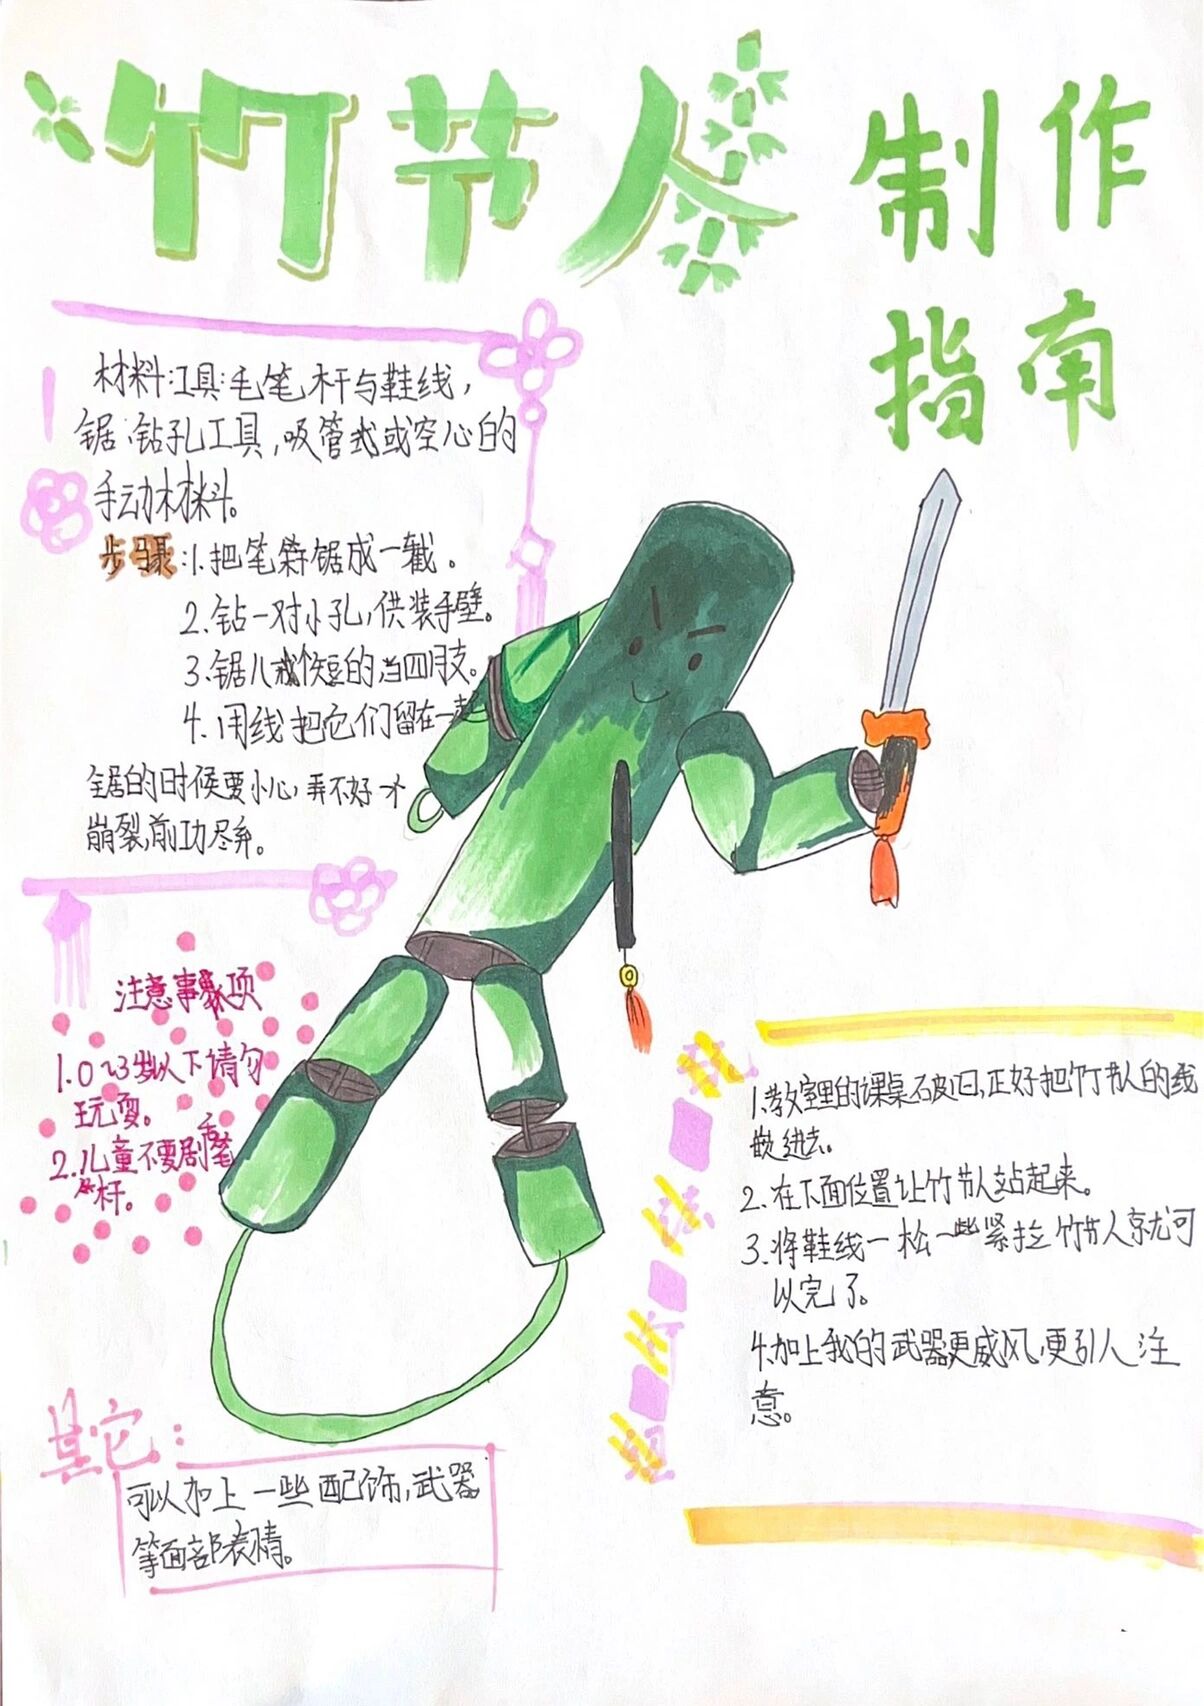 竹节人
制作
指南
材料:工具:毛笔杆与鞋线,
锯,钻孔工具,吸管式或空心的
手动材料。
步骤:1.把笔等锯成一截。
2.钻一对小孔,供装手壁。
3.锯八截短的,当四肢。
4.用线把它们留在一起
锯的时候要小心,弄不好一
崩裂,前功尽弃。
注意事项
1.0~3岁以下请勿
玩耍。
2.儿童不要剧毛笔
杆。
玩法
1.教室里的课桌破旧,正好把竹节人的线
嵌进去。
2.在下面位置让竹节人站起来。
3.将鞋线一松一些紧拉竹节人就可
以完了。
4.加上我的武器更威风,更引人注
意。
其它:
可以加上一些配饰,武器
等面部表情。